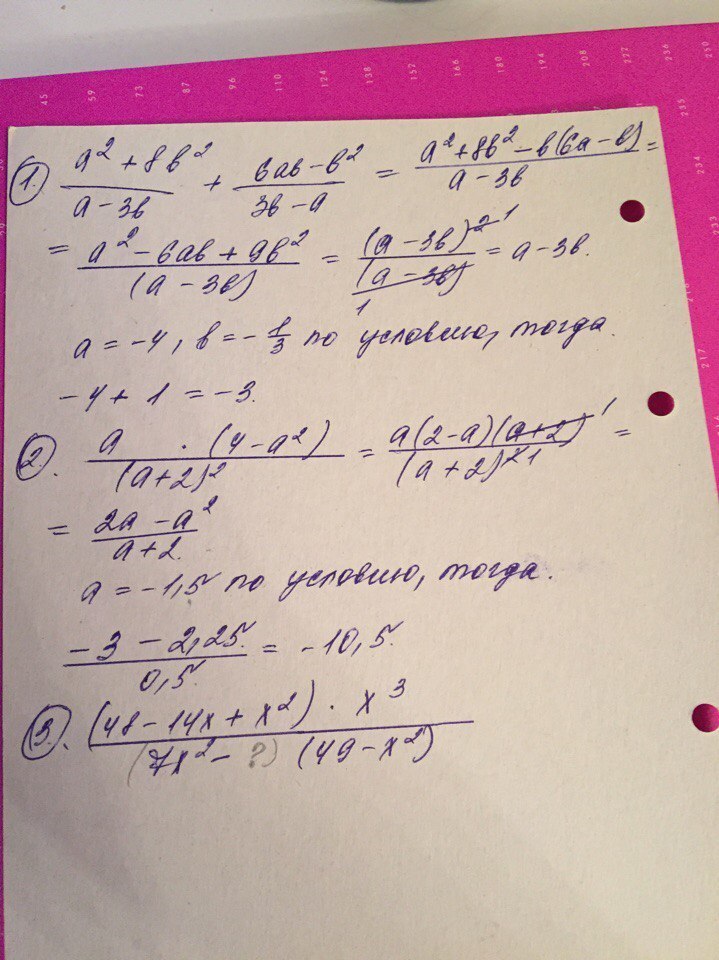 45 59 73 87 96 110 124 138 157 166 180 194 208 227 236 250
1. (a² + 8в²)/(a - 3в) + (6aв - в²)/(3в - a) = (a² + 8в² - в(6a - в))/(a - 3в) =
= (a² - 6aв + 9в²)/((a - 3в)) = (a - 3в)² ¹/((a - 3в) 1) = a - 3в.
a = -4, в = -1/3 по условию, тогда.
-4 + 1 = -3.
2. (a · (4 - a²))/((a+2)²) = (a(2-a)(a+2) ¹)/((a+2)² ¹) =
= (2a - a²)/(a+2.)
a = -1,5 по условию, тогда.
(-3 - 2,25)/(0,5) = -10,5.
3. ((48 - 14x + x²) · x³)/((7x² - ?) (49 - x²))
235
234